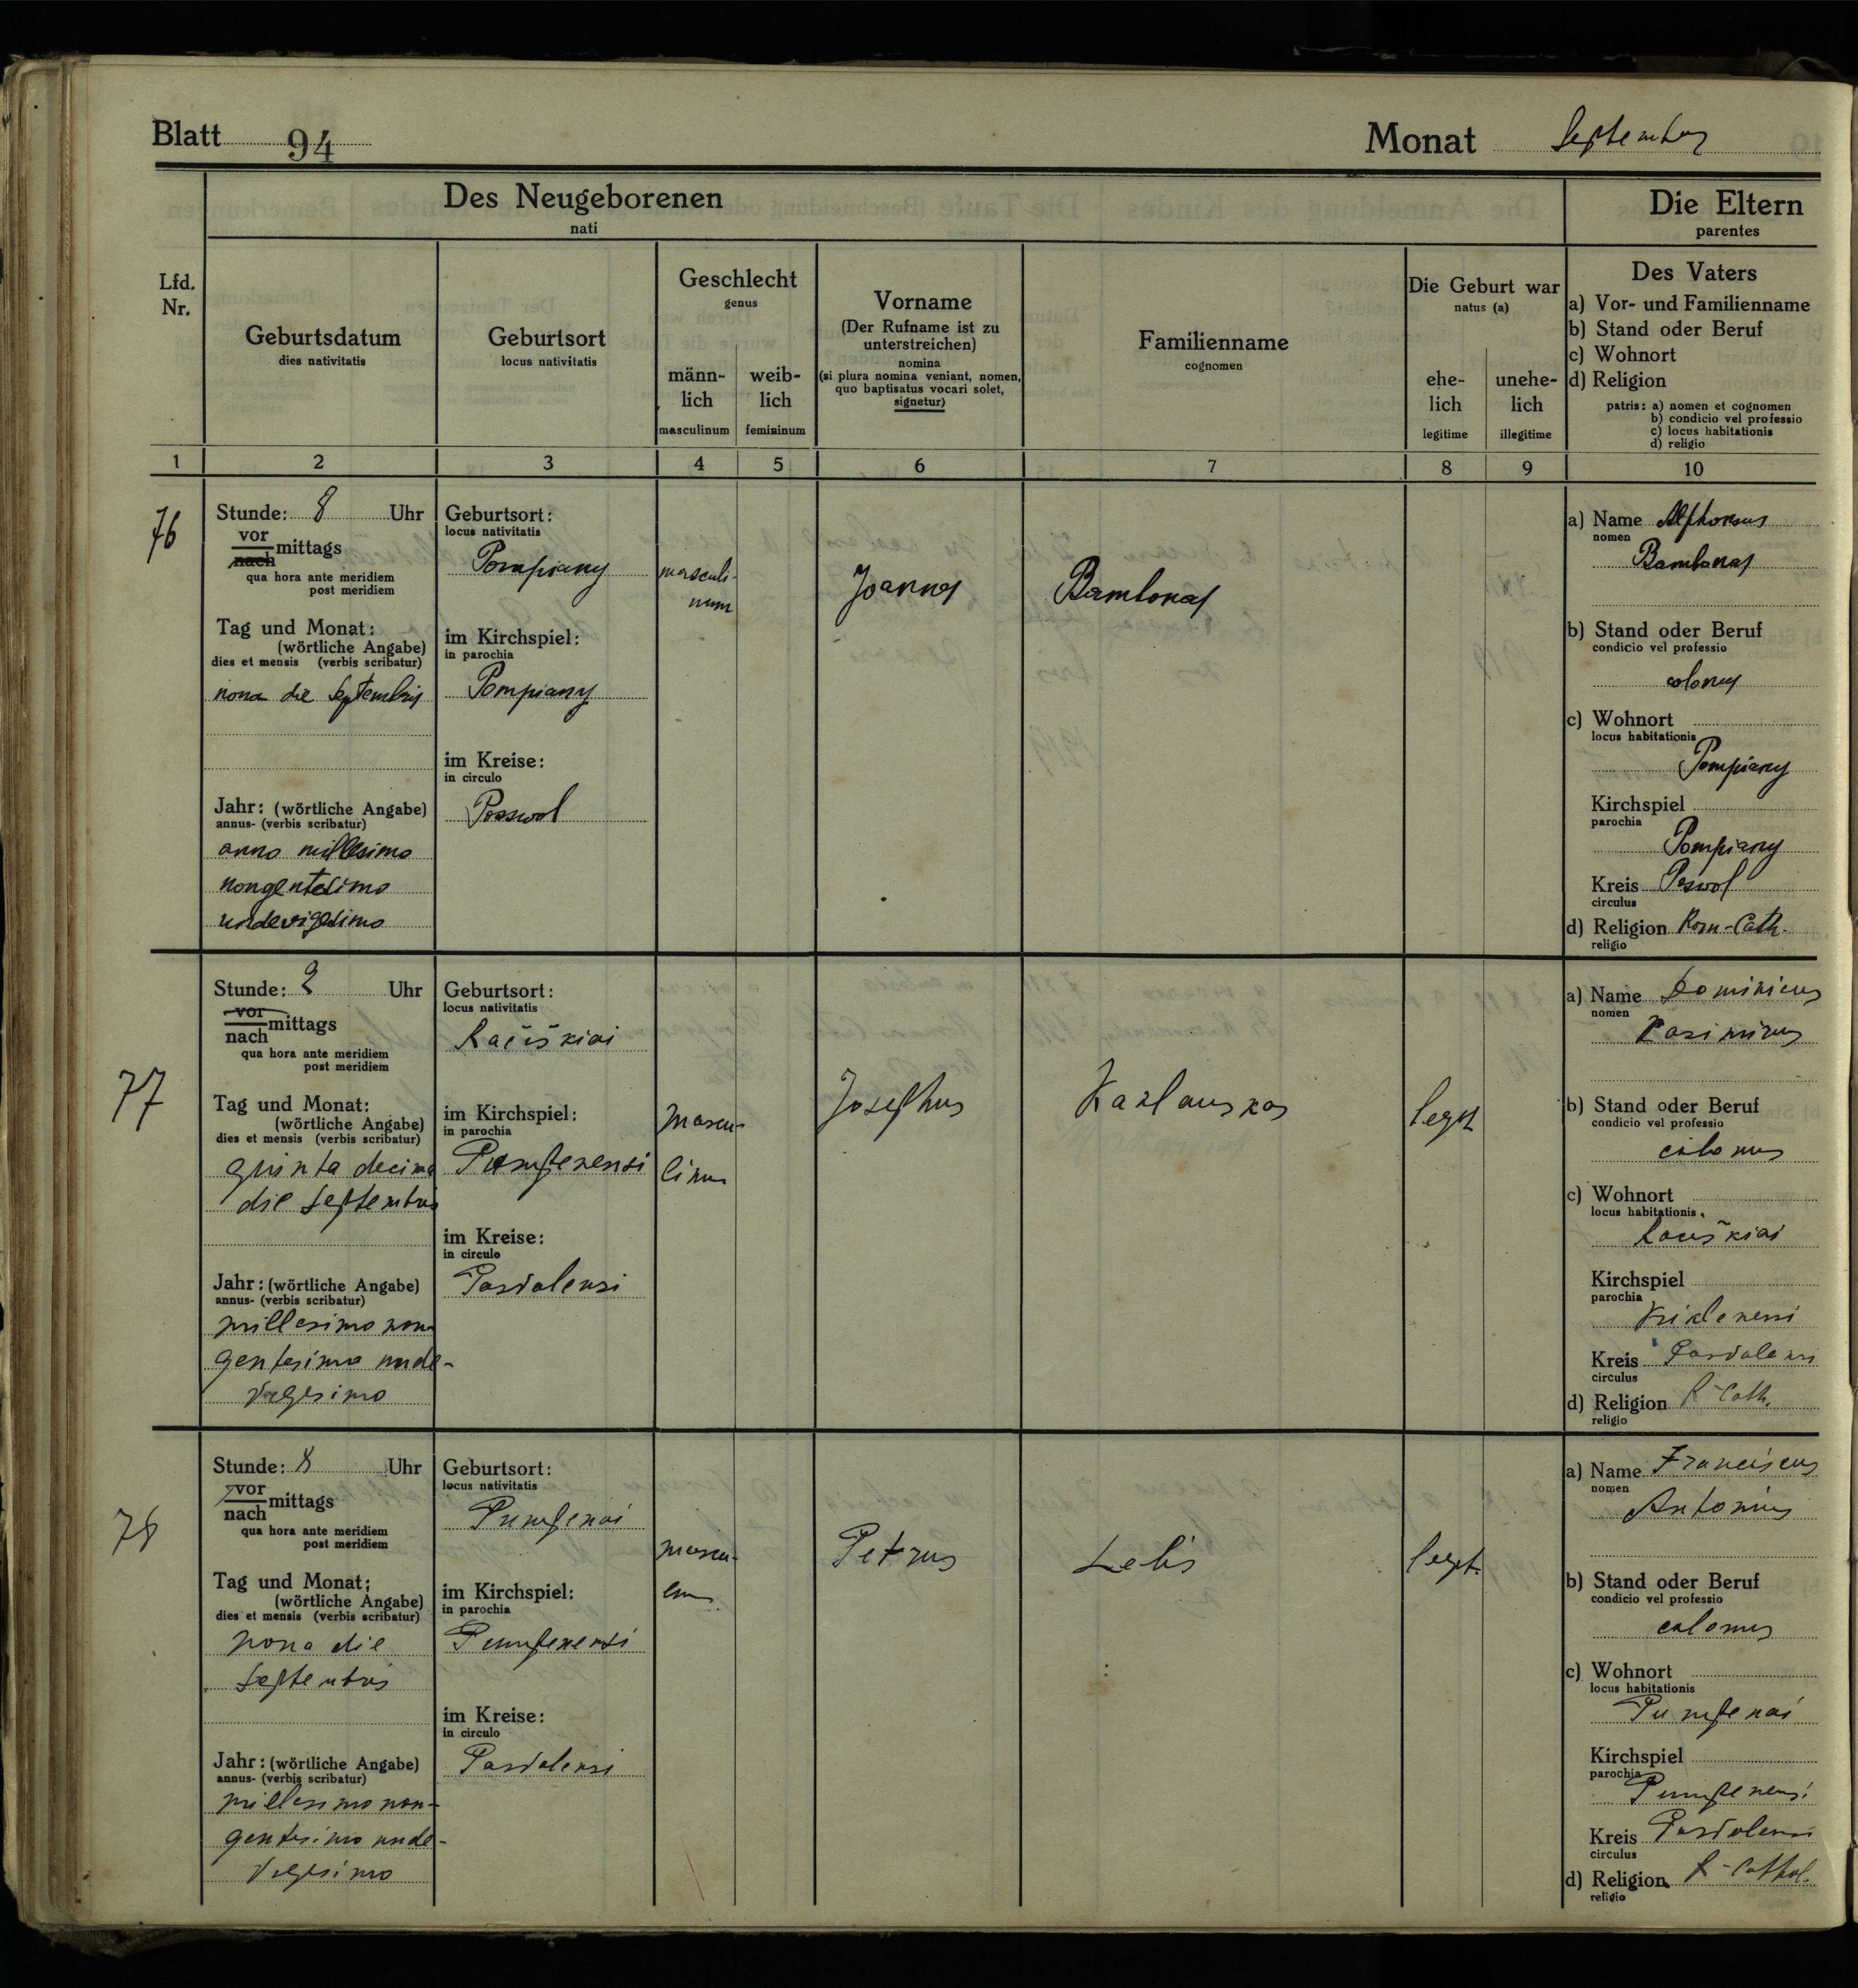 Blatt 94
Monat September
Des Neugeborenen
nati
Die Eltern
parentes
Lfd.
Nr.
Geburtsdatum
dies nativitatis
Geburtsort
locus nativitatis
Geschlecht
genus
männ-
lich
masculinum
weib-
lich
femininum
Vorname
(Der Rufname ist zu
unterstreichen)
nomina
(si plura nomina veniant, nomen,
quo baptisatus vocari solet,
signetur)
Familienname
cognomen
Die Geburt war
natus (a)
ehe-
lich
legitime
unehe-
lich
illegitime
Des Vaters
a) Vor- und Familienname
b) Stand oder Beruf
c) Wohnort
d) Religion
patris: a) nomen et cognomen
b) condicio vel professio
c) locus habitationis
d) religio
1 2 3 4 5 6 7 8 9 10
76
Stunde: 8 Uhr
vor
nach mittags
qua hora ante meridiem
post meridiem
Tag und Monat:
(wörtliche Angabe)
dies et mensis (verbis scribatur)
nona die Septembris
Jahr: (wörtliche Angabe)
annus- (verbis scribatur)
anno millesimo
nongentesimo
undevigesimo
Geburtsort:
locus nativitatis
Pompiany
im Kirchspiel:
in parochia
Pompiany
im Kreise:
in circulo
Posswol
masculi-
num
Joannes
Bambonas
a) Name Alphonsus
nomen
Bambonas
b) Stand oder Beruf
condicio vel professio
colonus
c) Wohnort
locus habitationis
Pompiany
Kirchspiel
parochia
Pompiany
Kreis Poswol
circulus
d) Religion Rom-Cath.
religio
77
Stunde: 2 Uhr
vor
nach mittags
qua hora ante meridiem
post meridiem
Tag und Monat:
(wörtliche Angabe)
dies et mensis (verbis scribatur)
quinta decima
die Septembris
Jahr: (wörtliche Angabe)
annus- (verbis scribatur)
millesimo non-
gentesimo unde-
vigesimo
Geburtsort:
locus nativitatis
im Kirchspiel:
in parochia
Pumpenensi
im Kreise:
in circulo
Pasvalensi
mascu-
linum
Josephus
Kazlauskas
legit
a) Name Dominicus
nomen
Kasimirus
b) Stand oder Beruf
condicio vel professio
colonus
c) Wohnort
locus habitationis
Kirchspiel
parochia
Kreis Pasvalensi
circulus
d) Religion R-Cath.
religio
78
Stunde: 8 Uhr
vor
nach mittags
qua hora ante meridiem
post meridiem
Tag und Monat:
(wörtliche Angabe)
dies et mensis (verbis scribatur)
nona die
Septembris
Jahr: (wörtliche Angabe)
annus- (verbis scribatur)
millesimo non-
gentesimo unde-
vigesimo
Geburtsort:
locus nativitatis
Pumpenai
im Kirchspiel:
in parochia
Pumpenensi
im Kreise:
in circulo
Pasvalensi
mascu-
Petrus
Lelis
legit.
a) Name Franciscus
nomen
Antonius
b) Stand oder Beruf
condicio vel professio
colonus
c) Wohnort
locus habitationis
Pumpenai
Kirchspiel
parochia
Pumpenensi
Kreis Pasvalensi
circulus
d) Religion R-Cathol.
religio